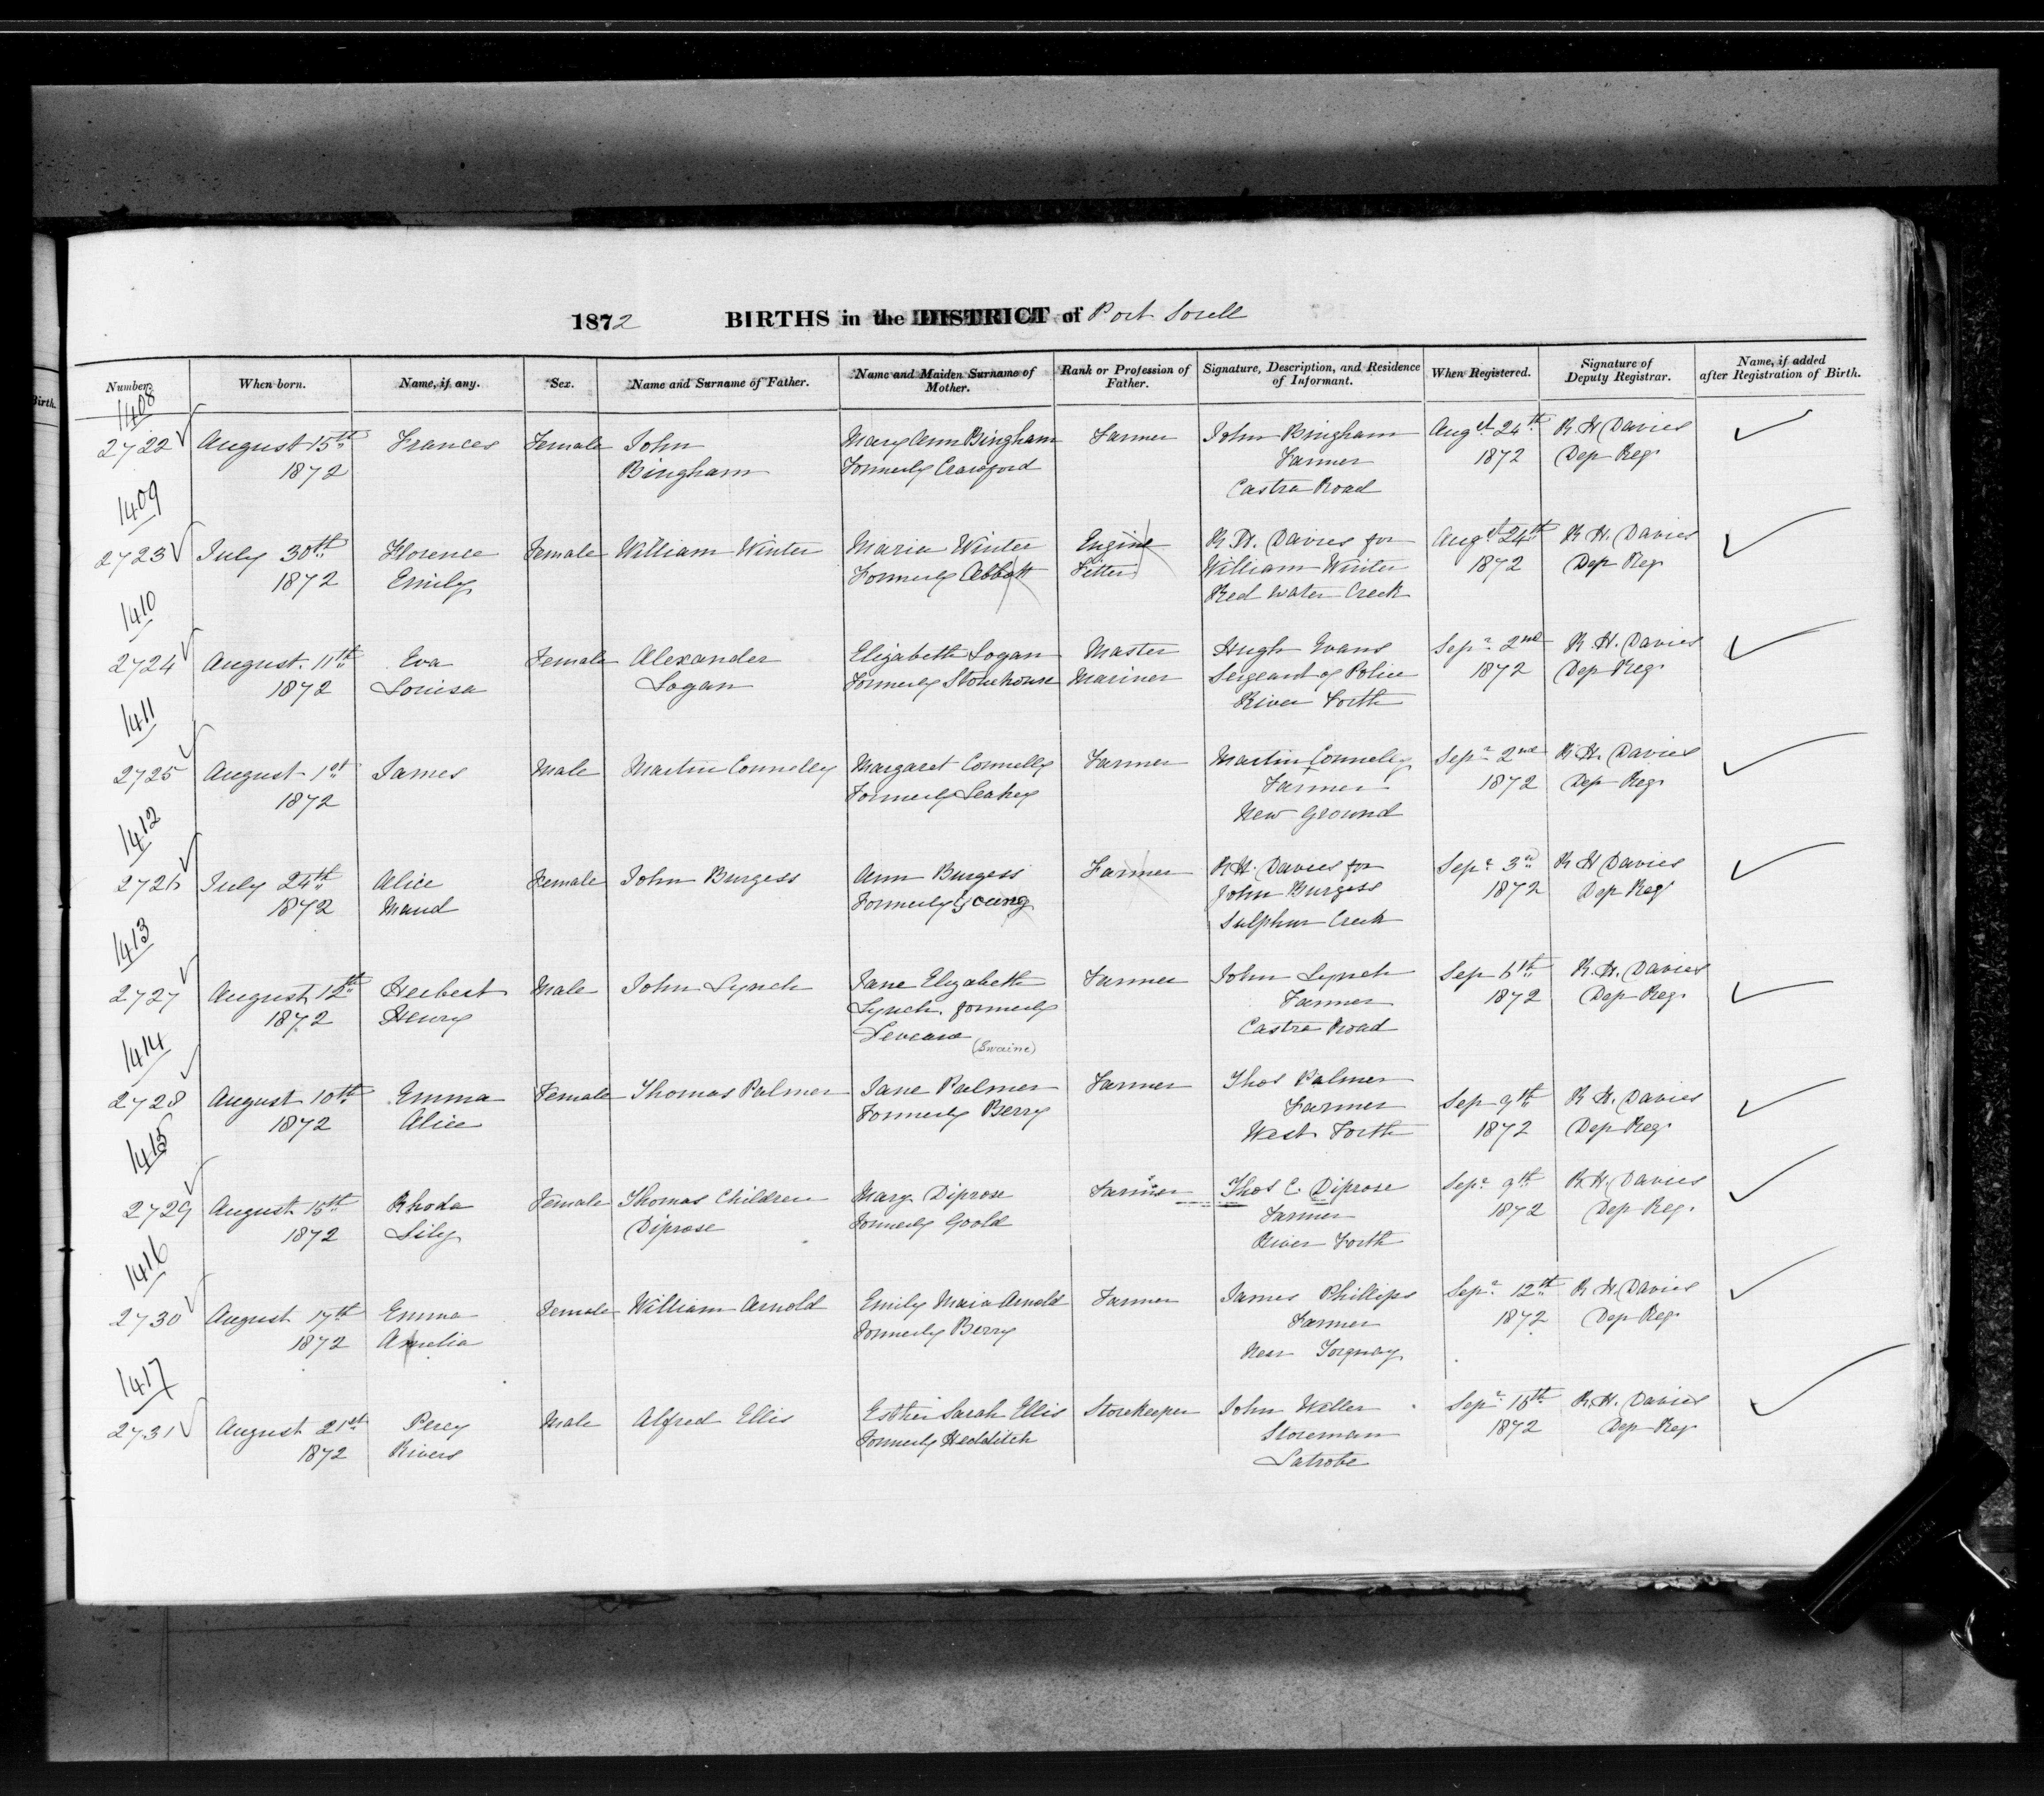 1872 BIRTHS in the DISTRICT of Port Sorell
Birth.
Number. When born. Name, if any. Sex. Name and Surname of Father. Name and Maiden Surname of Mother. Rank or Profession of Father. Signature, Description, and Residence of Informant. When Registered. Signature of Deputy Registrar. Name, if added after Registration of Birth.
1408
2722 August 15th Frances Female John Mary Ann Bingham Farmer John Bingham Augst 24th R H Davies
1872 Bingham Formerly Crawford Farmer 1872 Dep Reg
Castra Road
1409
2723 July 30th Florence Female William Winter Maria Winter Engine R. H. Davies for Augst 24th R H. Davies
1872 Emily Formerly Abbott Fitter William Winter 1872 Dep Reg
Red Water Creek
1410
2724 August 11th Eva Female Alexander Elizabeth Logan Master Hugh Evans Sepr 2nd R. H. Davies
1872 Louisa Logan Formerly Stonehouse Mariner Sergeant of Police 1872 Dep Reg
River Forth
1411
2725 August 1st James Male Martin Connelly Margaret Connelly Farmer Martin Connely Sepr 2nd R. H. Davies
1872 Formerly Leahey Farmer 1872 Dep Reg
New Ground
1412
2726 July 24th Alice Female John Burgess Ann Burgess Farmer R. H. Davies for Sepr 3rd R H Davies
1872 Maud Formerly Young John Burgess 1872 Dep Reg
Sulphur Creek
1413
2727 August 12th Herbert Male John Lynch Jane Elizabeth Farmer John Lynch Sep 6th R. H. Davies
1872 Henry Lynch formerly Farmer 1872 Dep Reg
(Swaine) Castra Road
1414
2728 August 10th Emma Female Thomas Palmer Jane Palmer Farmer Thos Palmer Sep 9th R H. Davies
1872 Alice Formerly Berry Farmer 1872 Dep Reg
West Forth
1415
2729 August 15th Rhoda Female Thomas Children Mary Diprose Farmer Thos C. Diprose Sepr 9th R H. Davies
1872 Lily Diprose Formerly Goold Farmer 1872 Dep Reg.
River Forth
1416
2730 August 17th Emma Female William Arnold Emily Maria Arnold Farmer James Phillips Sepr 12th R H. Davies
1872 Amelia Formerly Berry Farmer 1872 Dep Reg
Near Torquay
1417
2731 August 21st Percy Male Alfred Ellis Esther Sarah Ellis Storekeeper John Weller Sepr 18th R. H. Davies
1872 Rivers Formerly Hedditch Storeman 1872 Dep Reg
Latrobe